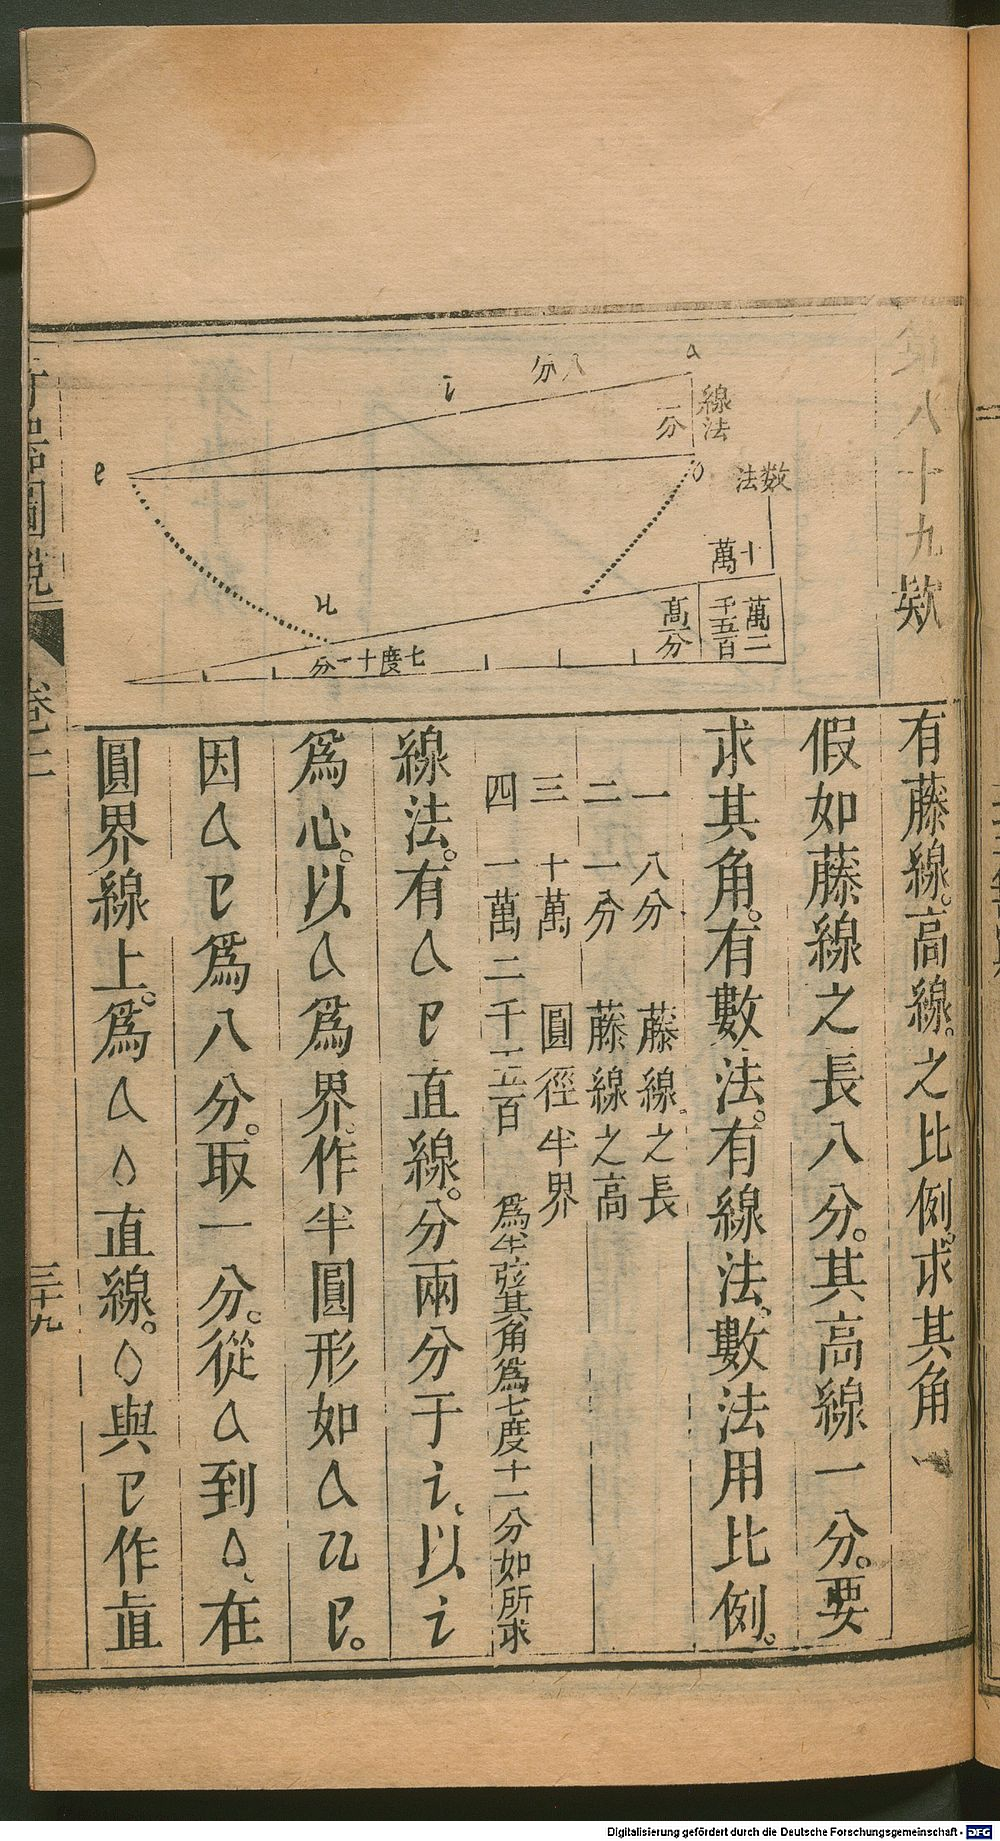 第八十九款
線法
一分
八分
a
i
e
o
數法
十萬
一萬二千五百
高一分
u
七度十一分
有藤線。高線。之比例。求其角
假如藤線之長八分。其高線一分。要
求其角。有數法。有線法。數法用比例。
一 八分 藤線之長
二 一分 藤線之高
三 十萬 圓徑半界
四 一萬二千五百 爲半弦其角爲七度十一分如所求
線法。有a e直線。分兩分于i、以i
爲心。以a爲界。作半圓形如a u e。
因a e爲八分。取一分。從a到o、在
圓界線上。爲a o直線。o與e作直
奇器圖說 卷二 三十九
Digitalisierung gefördert durch die Deutsche Forschungsgemeinschaft - DFG